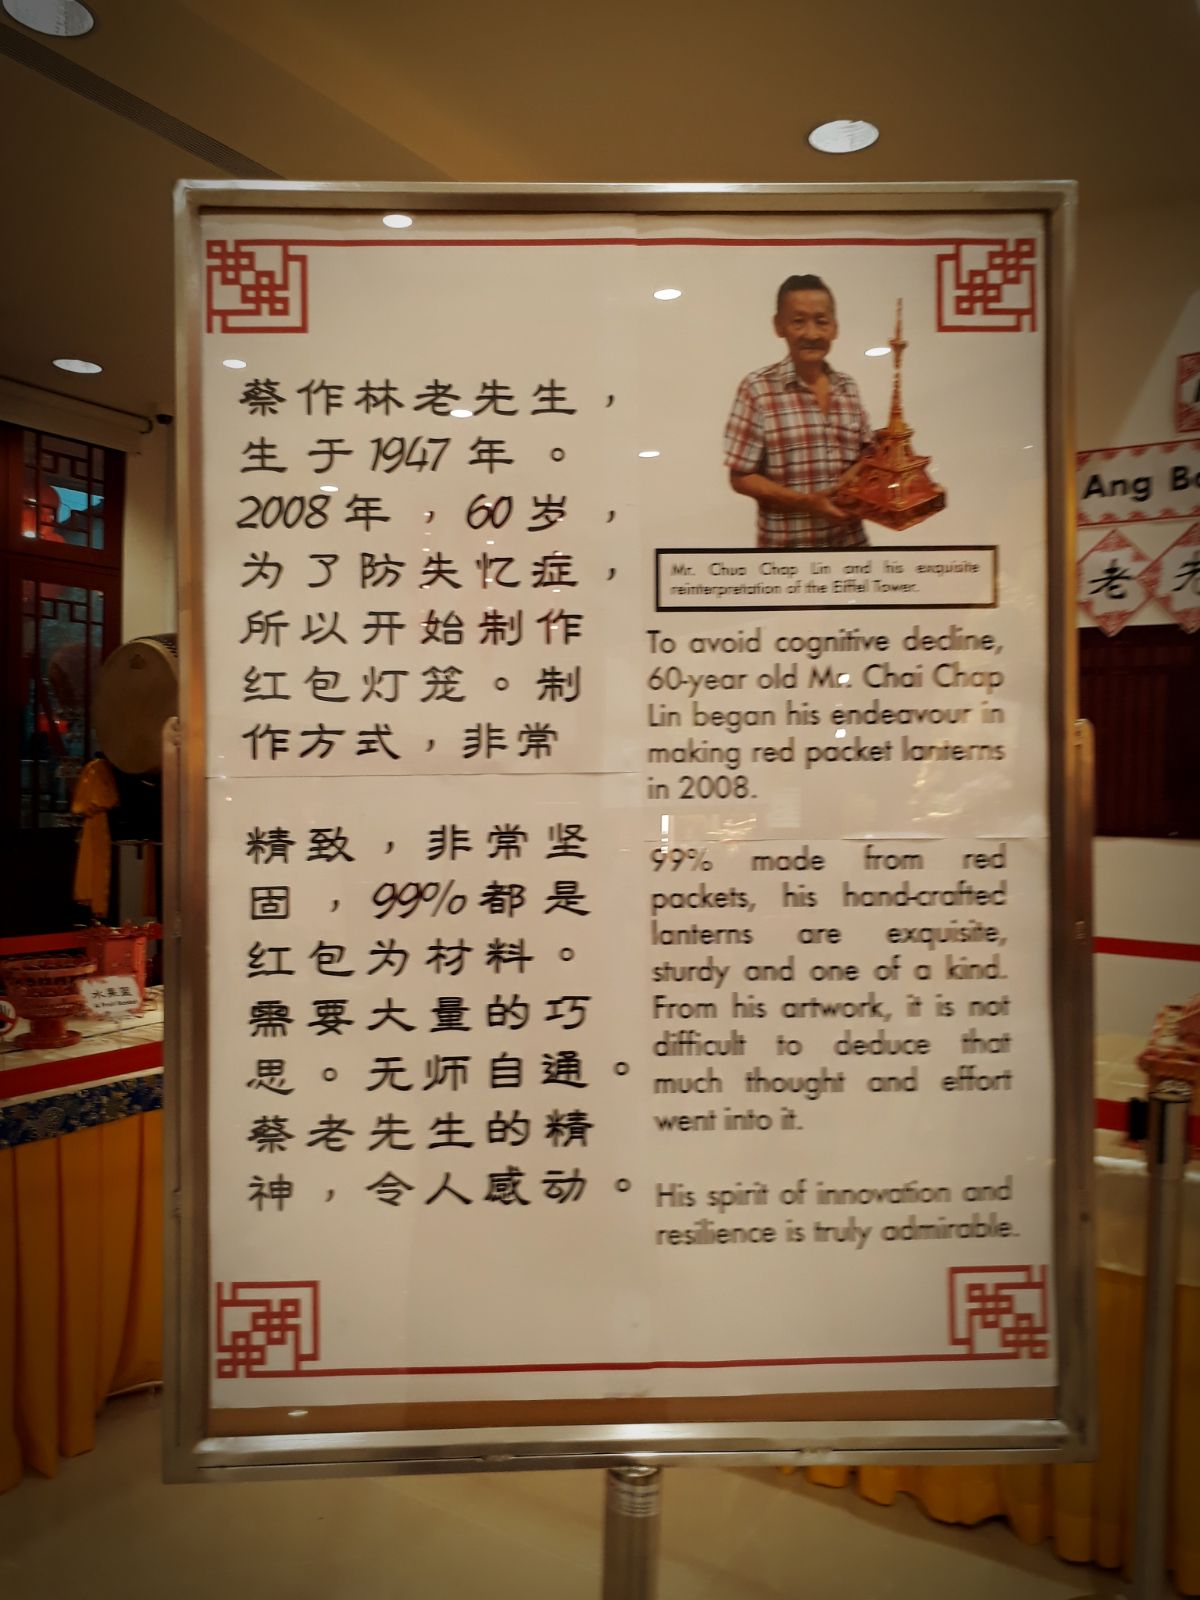 蔡作林老先生，
生于1947年。
2008年，60岁，
为了防失忆症，
所以开始制作
红包灯笼。制
作方式，非常
精致，非常坚
固，99%都是
红包为材料。
需要大量的巧
思。无师自通。
蔡老先生的精
神，令人感动。
Mr. Chua Chap Lin and his exquisite
reinterpretation of the Eiffel Tower.
To avoid cognitive decline,
60-year old Mr. Chai Chap
Lin began his endeavour in
making red packet lanterns
in 2008.
99% made from red
packets, his hand-crafted
lanterns are exquisite,
sturdy and one of a kind.
From his artwork, it is not
difficult to deduce that
much thought and effort
went into it.
His spirit of innovation and
resilience is truly admirable.
Ang
老
水果篮